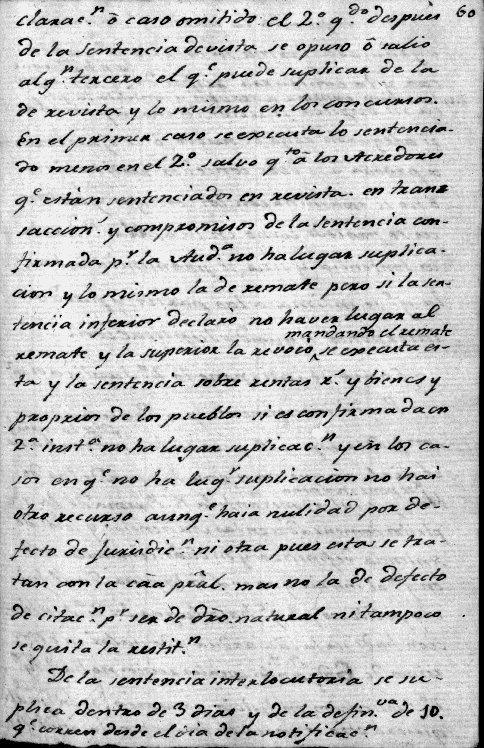 60
clarac.n ó caso omitido el 2.o q.do despues
de la sentencia de vista se opuso ó salio
alg.n tercero el q.e puede suplicar de la
de revista y lo mismo en los concursos.
En el primer caso se executa lo sentencia-
do menos en el 2.o salvo q.to á los Acredores
q.e estàn sentenciados en revista. en tran-
saccion.s y compromisos de la sentencia con-
firmada p.r la Aud.a no ha lugar suplica-
cion y lo mismo la de remate pero si la sen-
tencia inferior declarò no haver lugar al
mandando el remate
remate y la superior la revocò ^ se executa es-
ta y la sentencia sobre rentas r.s y bienes y
proprios de los pueblos si es confirmada en
2.a inst.a no ha lugar suplicac.n y en los ca-
sos en q.e no ha lug.r suplicacion no hai
otro recurso aunq.e haia nulidad por de-
fecto de Jurisdic.n ni otra pues estas se tra-
tan con la cãa prãl. mas no la de defecto
de citac.n p.r ser de dr̃o. natural ni tampoco
se quita la restit.n
De la sentencia interlocutoria se su-
plica dentro de 3 dias y de la defin.va de 10.
q.e corren desde el dia de la notificac.n